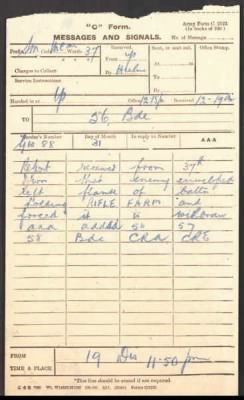 "C" Form.
Army Form C. 2123.
(In books of 100.)
MESSAGES AND SIGNALS.
No. of Message
Prefix Code Words 37
Received
Sent, or sent out
Office Stamp.
From
By
Charges to Collect
Service Instructions
Handed in at Office Received
TO 56 Bde
Sender's Number
Day of Month
In reply to Number
AAA
GW 88 31
Report received from 37th
Divn that enemy enveloped
left flank of battn
holding RIFLE FARM and
forced it to withdraw
aaa added 56 57
58 Bde CRA CRE
FROM 19 Div
TIME & PLACE 11-50 pm
*This line should be erased if not required.